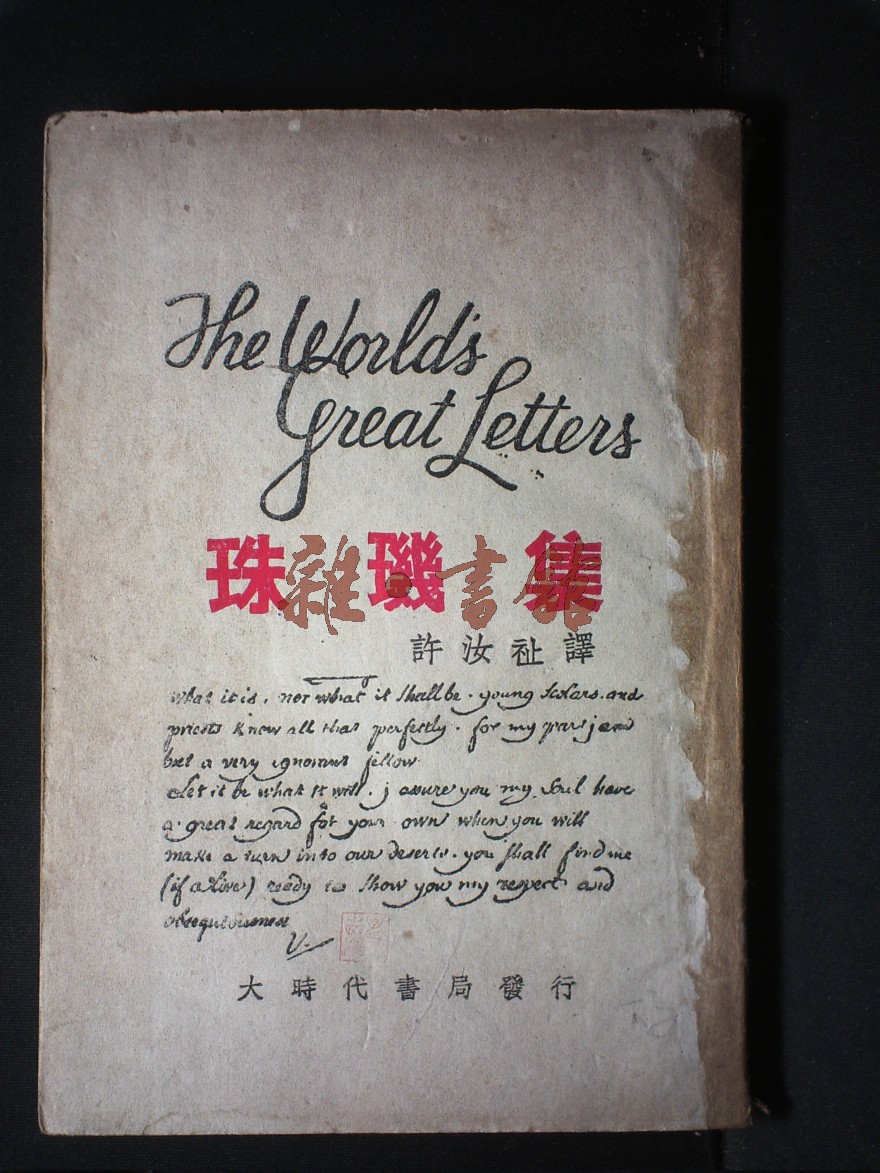 The World's
Great Letters
珠璣集
雜·書館
許汝祉譯
what it is, nor what it shall be. young scolars, and
priests know all that perfectly. for my part j am
but a very ignorant fellow.
Let it be what it will. j assure you my soul have
a great regard for your own when you will
make a turn into our deserts. you shall find me
(if alive) ready to show you my respect and
obsequiousness
V.
大時代書局發行